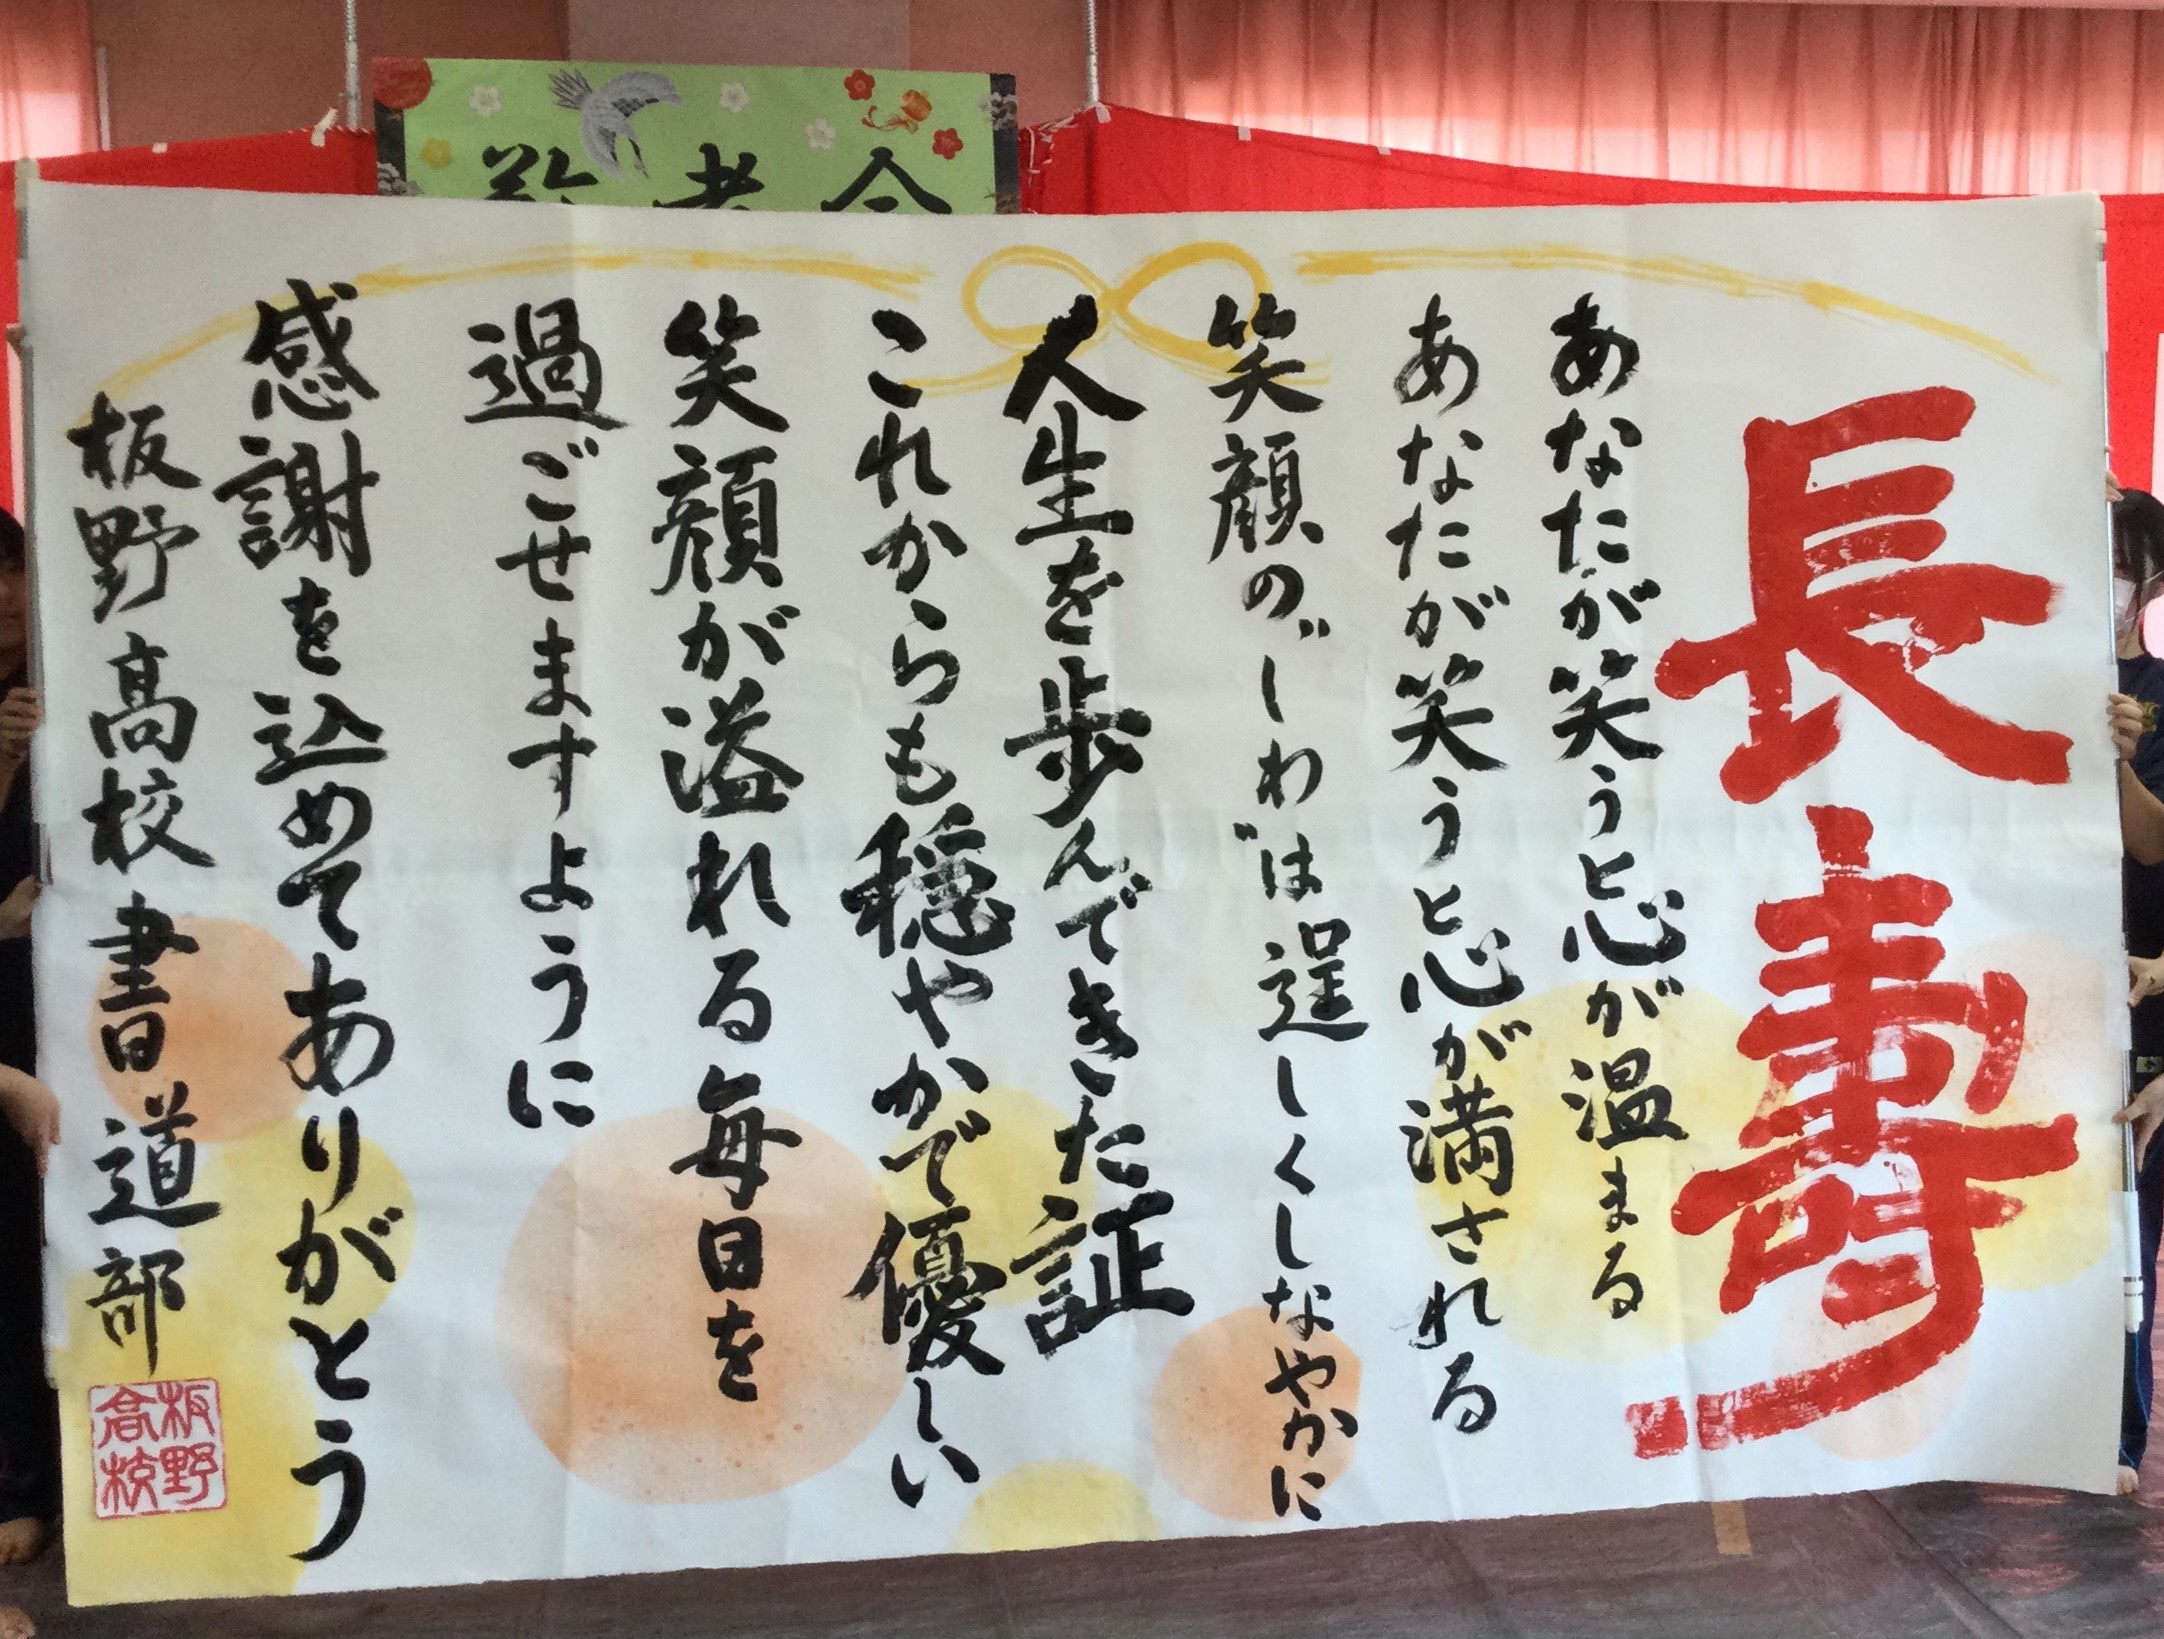 敬老会
長寿
あなたが笑うと心が温まる
あなたが笑うと心が満される
笑顔の〝しわ〟は逞しくしなやかに
人生を歩んできた証
これからも穏やかで優しい
笑顔が溢れる毎日を
過ごせますように
感謝を込めてありがとう
板野高校書道部
板野
高校